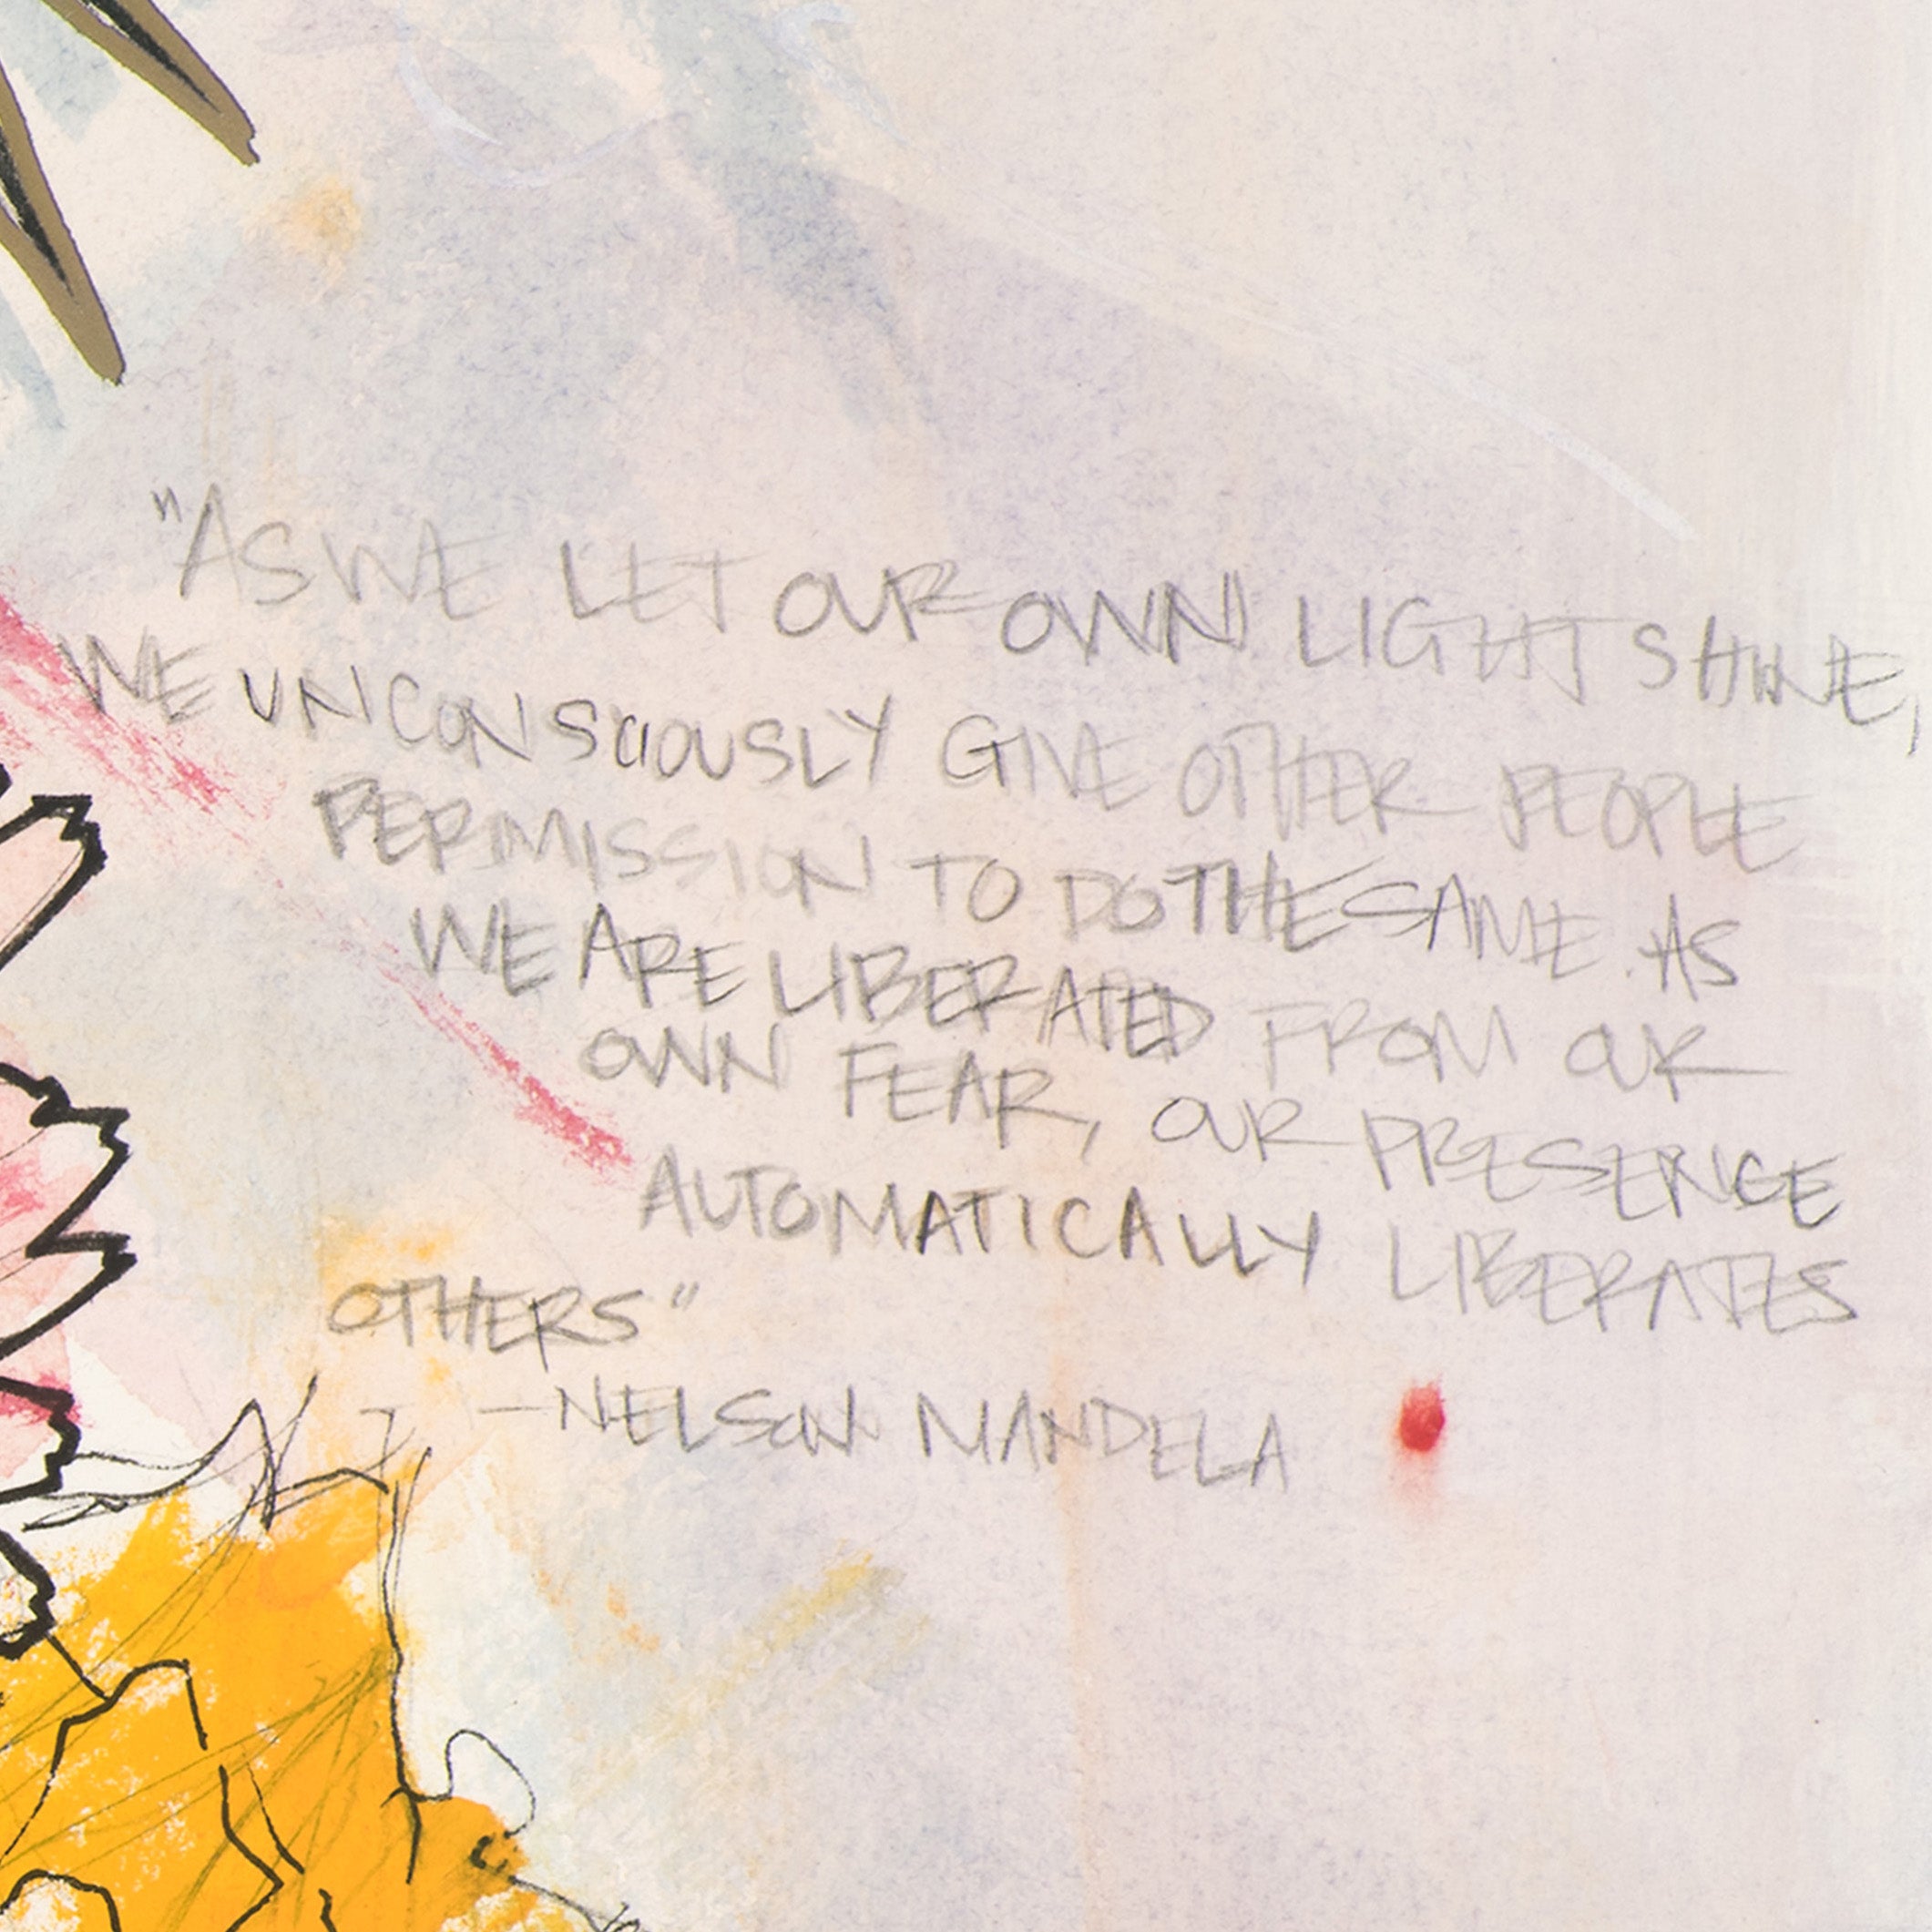 "AS WE LET OUR OWN LIGHT SHINE,
WE UNCONSCIOUSLY GIVE OTHER PEOPLE
PERMISSION TO DO THE SAME. AS
WE ARE LIBERATED FROM OUR
OWN FEAR, OUR PRESENCE
AUTOMATICALLY LIBERATES
OTHERS"
—NELSON MANDELA